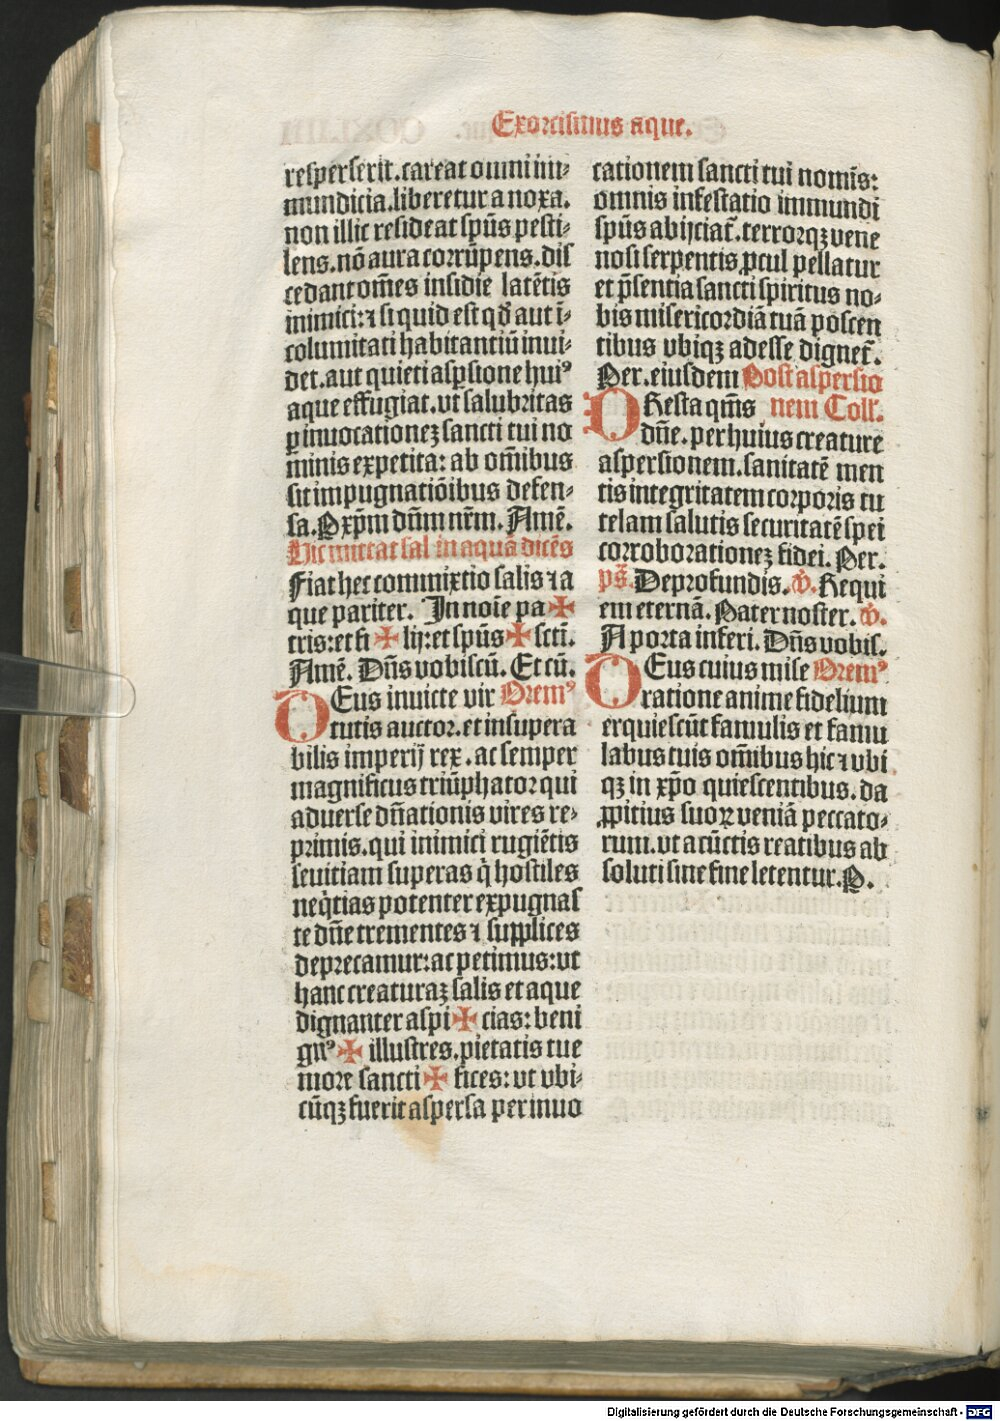 Exorcismus aque.
resperserit. careat omni im⸗
mundicia. liberetur a noxa.
non illic resideat spūs pesti⸗
lens. nō aura corrūpens. dis
cedant om̄es insidie latētis
inimici: ⁊ si quid est qđ aut ī⸗
columitati habitantiū inui⸗
det. aut quieti asꝑsione huiꝰ
aque effugiat. vt salubritas
ꝑ inuocationeꝫ sancti tui no
minis expetita: ab om̄ibus
sit impugnatiōibus defen⸗
sa. P xp̄m dn̄m nr̄m. Amē.
Hic mittat sal in aquā dicēs
Fiat hec commixtio salis ⁊ a
que pariter. In noīe pa ✠
tris: et fi ✠ lij: et spūs ✠ sctī.
Amē. Dn̄s vobiscū. Et cū.
DEus inuicte vir Oremꝰ
tutis auctor. et insupera
bilis imperij rex. ac semper
magnificus triūphator qui
aduerse dn̄ationis vires re⸗
primis. qui inimici rugiētis
seuitiam superas q̇ hostiles
neq̇tias potenter expugnas
te dn̄e trementes ⁊ supplices
deprecamur: ac petimus: vt
hanc creaturaꝫ salis et aque
dignanter aspi ✠ cias: beni
gnꝰ ✠ illustres. pietatis tue
more sancti ✠ fices: vt vbi⸗
cūqꝫ fuerit aspersa per inuo
cationem sancti tui nomīs:
omnis infestatio immundi
spūs abijciat᷑. terrorqꝫ vene
nosi serpentis ꝓcul pellatur
et p̄sentia sancti spiritus no⸗
bis misericordiā tuā poscen
tibus vbiqꝫ adesse dignet᷑.
Per. eiusdem Post aspersio
PResta qm̄s nem Coll'.
dn̄e. per huius creature
aspersionem. sanitatē men
tis integritatem corporis tu
telam salutis securitatē spei
corroborationeꝫ fidei. Per.
ps̄. De profundis. ℣. Requi
em eternā. Pater noster. ℣.
A porta inferi. Dn̄s vobis.
DEus cuius mise Oremꝰ
ratione anime fidelium
requiescūt famulis et famu
labus tuis om̄ibus hic ⁊ vbi
qꝫ in xp̄o quiescentibus. da
ꝓpitius suoꝝ veniā peccato⸗
rum. vt a cūctis reatibus ab
soluti sine fine letentur. P.
Digitalisierung gefördert durch die Deutsche Forschungsgemeinschaft - DFG